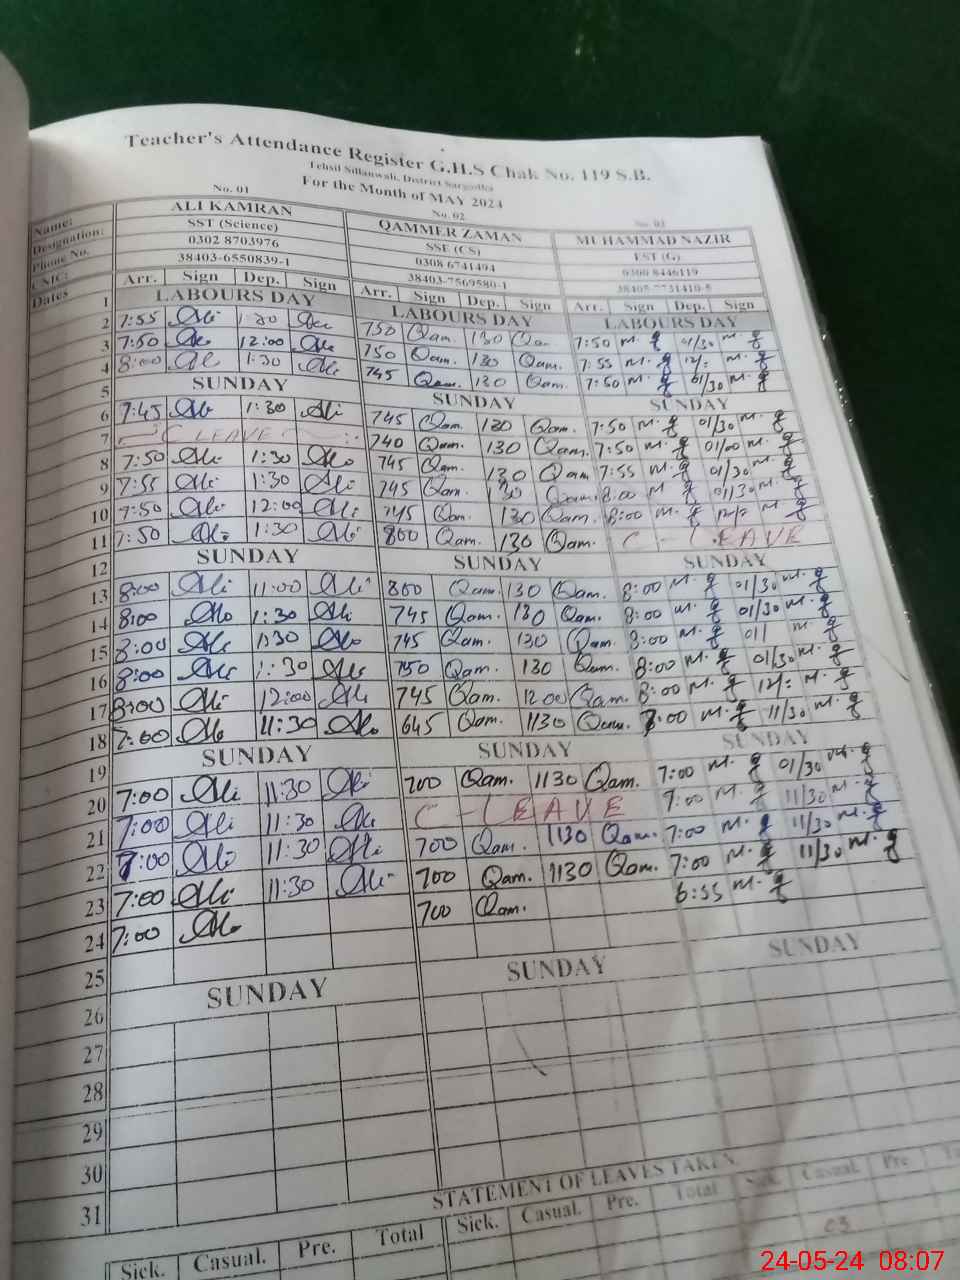 Teacher's Attendance Register G.H.S Chak No. 119 S.B.
Tehsil Sillanwali, District Sargodha
For the Month of MAY 2024
No. 01 No. 02 No. 03
Name: ALI KAMRAN QAMMER ZAMAN MUHAMMAD NAZIR
Designation: SST (Science) SSE (CS) EST (G)
Phone No. 0302 8703976 0308 6741494 0300 8446119
CNIC: 38403-6550839-1 38403-7569580-1
Dates Arr. Sign Dep. Sign Arr. Sign Dep. Sign Arr. Sign Dep. Sign
1 LABOURS DAY LABOURS DAY LABOURS DAY
2 7:55 Ali 1:30 Ali 750 Qam. 130 Qam 7:50 M. 01/30 M.
3 7:50 Ali 12:00 Ali 750 Qam. 130 Qam. 7:55 M. 12/: M.
4 8:00 Ali 1:30 Ali 745 Qam. 130 Qam. 7:50 M. 01/30 M.
5 SUNDAY SUNDAY SUNDAY
6 7:45 Ali 1:30 Ali 745 Qam. 130 Qam. 7:50 M. 01/30 M.
7 C LEAVE 740 Qam. 130 Qam. 7:50 M. 01/00 M.
8 7:50 Ali 1:30 Ali 745 Qam. 130 Qam 7:55 M. 01/30 M.
9 7:55 Ali 1:30 Ali 745 Qam. 130 Qam. 8:00 M 01/30 M.
10 7:50 Ali 12:00 Ali 745 Qam. 130 Qam. 8:00 M. M.
11 7:50 Ali 1:30 Ali 800 Qam. 130 Qam. C - LEAVE
12 SUNDAY SUNDAY SUNDAY
13 8:00 Ali 11:00 Ali 800 Qam. 130 Qam. 8:00 M. 01/30 M.
14 8:00 Ali 1:30 Ali 745 Qam. 130 Qam. 8:00 M. 01/30 M.
15 8:00 Ali 1:30 Ali 745 Qam. 130 Qam. 8:00 M. 01/ M.
16 8:00 Ali 1:30 Ali 750 Qam. 130 Qam. 8:00 M. 01/30 M.
17 8:00 Ali 12:00 Ali 745 Qam. 1200 Qam. 8:00 M. 12/: M.
18 7:00 Ali 11:30 Ali 645 Qam. 1130 Qam. 7:00 M. 11/30 M.
19 SUNDAY SUNDAY SUNDAY
20 7:00 Ali 11:30 Ali 700 Qam. 1130 Qam. 7:00 M. 01/30 M.
21 7:00 Ali 11:30 Ali C - LEAVE 7:00 M. 11/30 M.
22 7:00 Ali 11:30 Ali 700 Qam. 1130 Qam. 7:00 M. 11/30 M.
23 7:00 Ali 11:30 Ali 700 Qam. 1130 Qam. 7:00 M. 11/30 M.
24 7:00 Ali 700 Qam. 6:55 M.
25
26 SUNDAY SUNDAY SUNDAY
27
28
29
30
31
STATEMENT OF LEAVES TAKEN
Sick. Casual. Pre. Total Sick. Casual. Pre. Total Sick. Casual. Pre
03
24-05-24 08:07